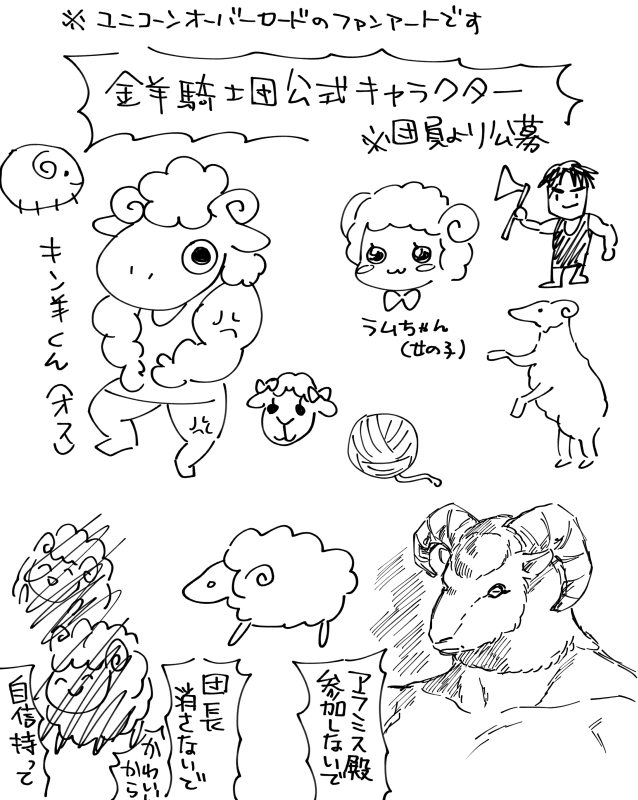 ※ ユニコーンオーバーロードのファンアートです
金羊騎士団公式キャラクター
※団員より公募
キン羊くん(オス)
ラムちゃん
(女の子)
アラミス殿
参加しないで
団長
消さないで
かわいい
から
自信持って